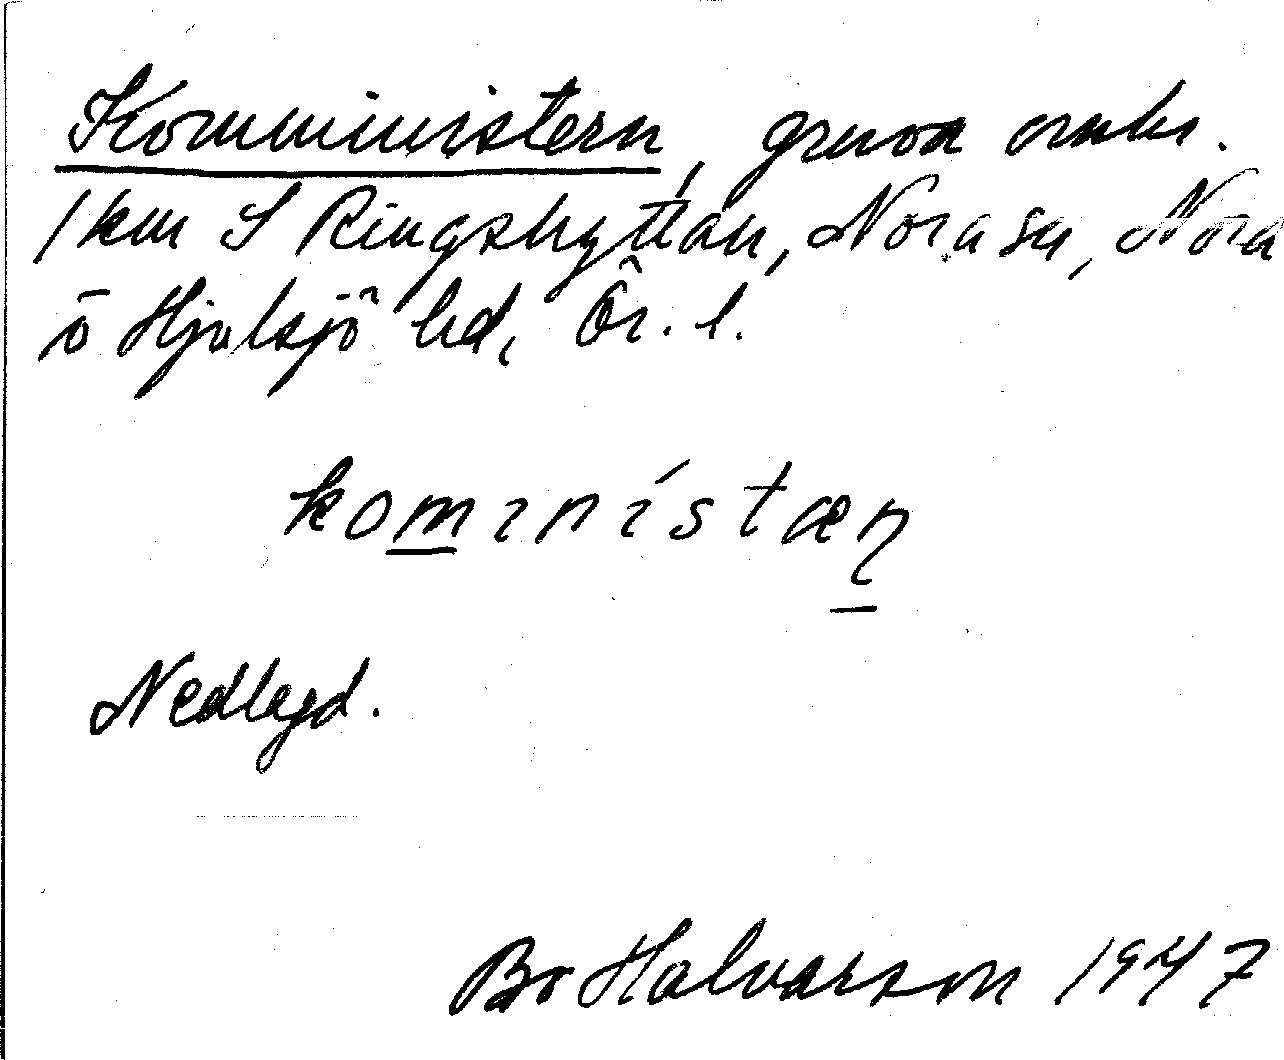 Komministern, gruva omkr.
1 km S Ringshyttan, Nora sn, Nora
o Hjulsjö hd, Ör. l.
komınístæṇ
Nedlagd.
Bo Halvarson 1947